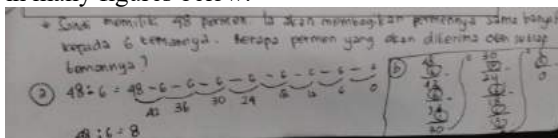 in many figures below.
* Soni memiliki 48 permen. Ia akan membagikan permennya sama banyak
kepada 6 temannya. Berapa permen yang akan diterima oleh setiap
temannya?
a 48 : 6 = 48 - 6 - 6 - 6 - 6 - 6 - 6 - 6 - 6
42 36 30 24 18 12 6 0
48 : 6 = 8
b 48
6 -
42
6 -
36
6 -
30
30
6 -
24
6 -
18
6 -
12
6
6 -
0